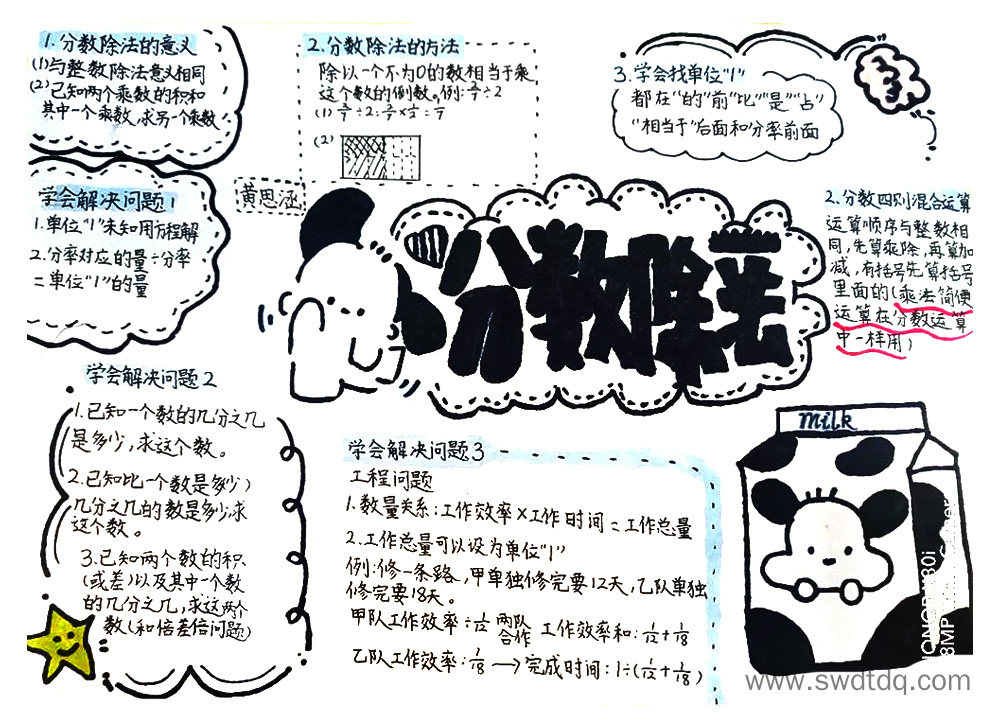 1.分数除法的意义
(1)与整数除法意义相同
(2)已知两个乘数的积和
其中一个乘数,求另一个乘数
2.分数除法的方法
除以一个不为0的数相当于乘
这个数的倒数。例:
(1)
(2)
3.学会找单位"1"
都在"的"前"比""是""占"
"相当于"后面和分率前面
黄思涵
学会解决问题1
1.单位"1"未知用方程解
2.分率对应的量÷分率
=单位"1"的量
分数除法
2.分数四则混合运算
运算顺序与整数相
同,先算乘除,再算加
减,有括号先算括号
里面的(乘法简便
运算在分数运算
中一样用)
学会解决问题2
1.已知一个数的几分之几
是多少,求这个数。
2.已知比一个数是多少)
几分之几的数是多少,求
这个数。
3.已知两个数的积
(或差)以及其中一个数
的几分之几,求这两个
数(和倍差倍问题)
学会解决问题3
工程问题
1.数量关系:工作效率×工作时间=工作总量
2.工作总量可以设为单位"1"
例:修一条路,甲单独修完要12天,乙队单独
修完要18天。
甲队工作效率÷1/12 两队合作 工作效率和:1/12+1/18
乙队工作效率:1/18→完成时间:1÷(1/12+1/18)
milk
www.swdtdq.com